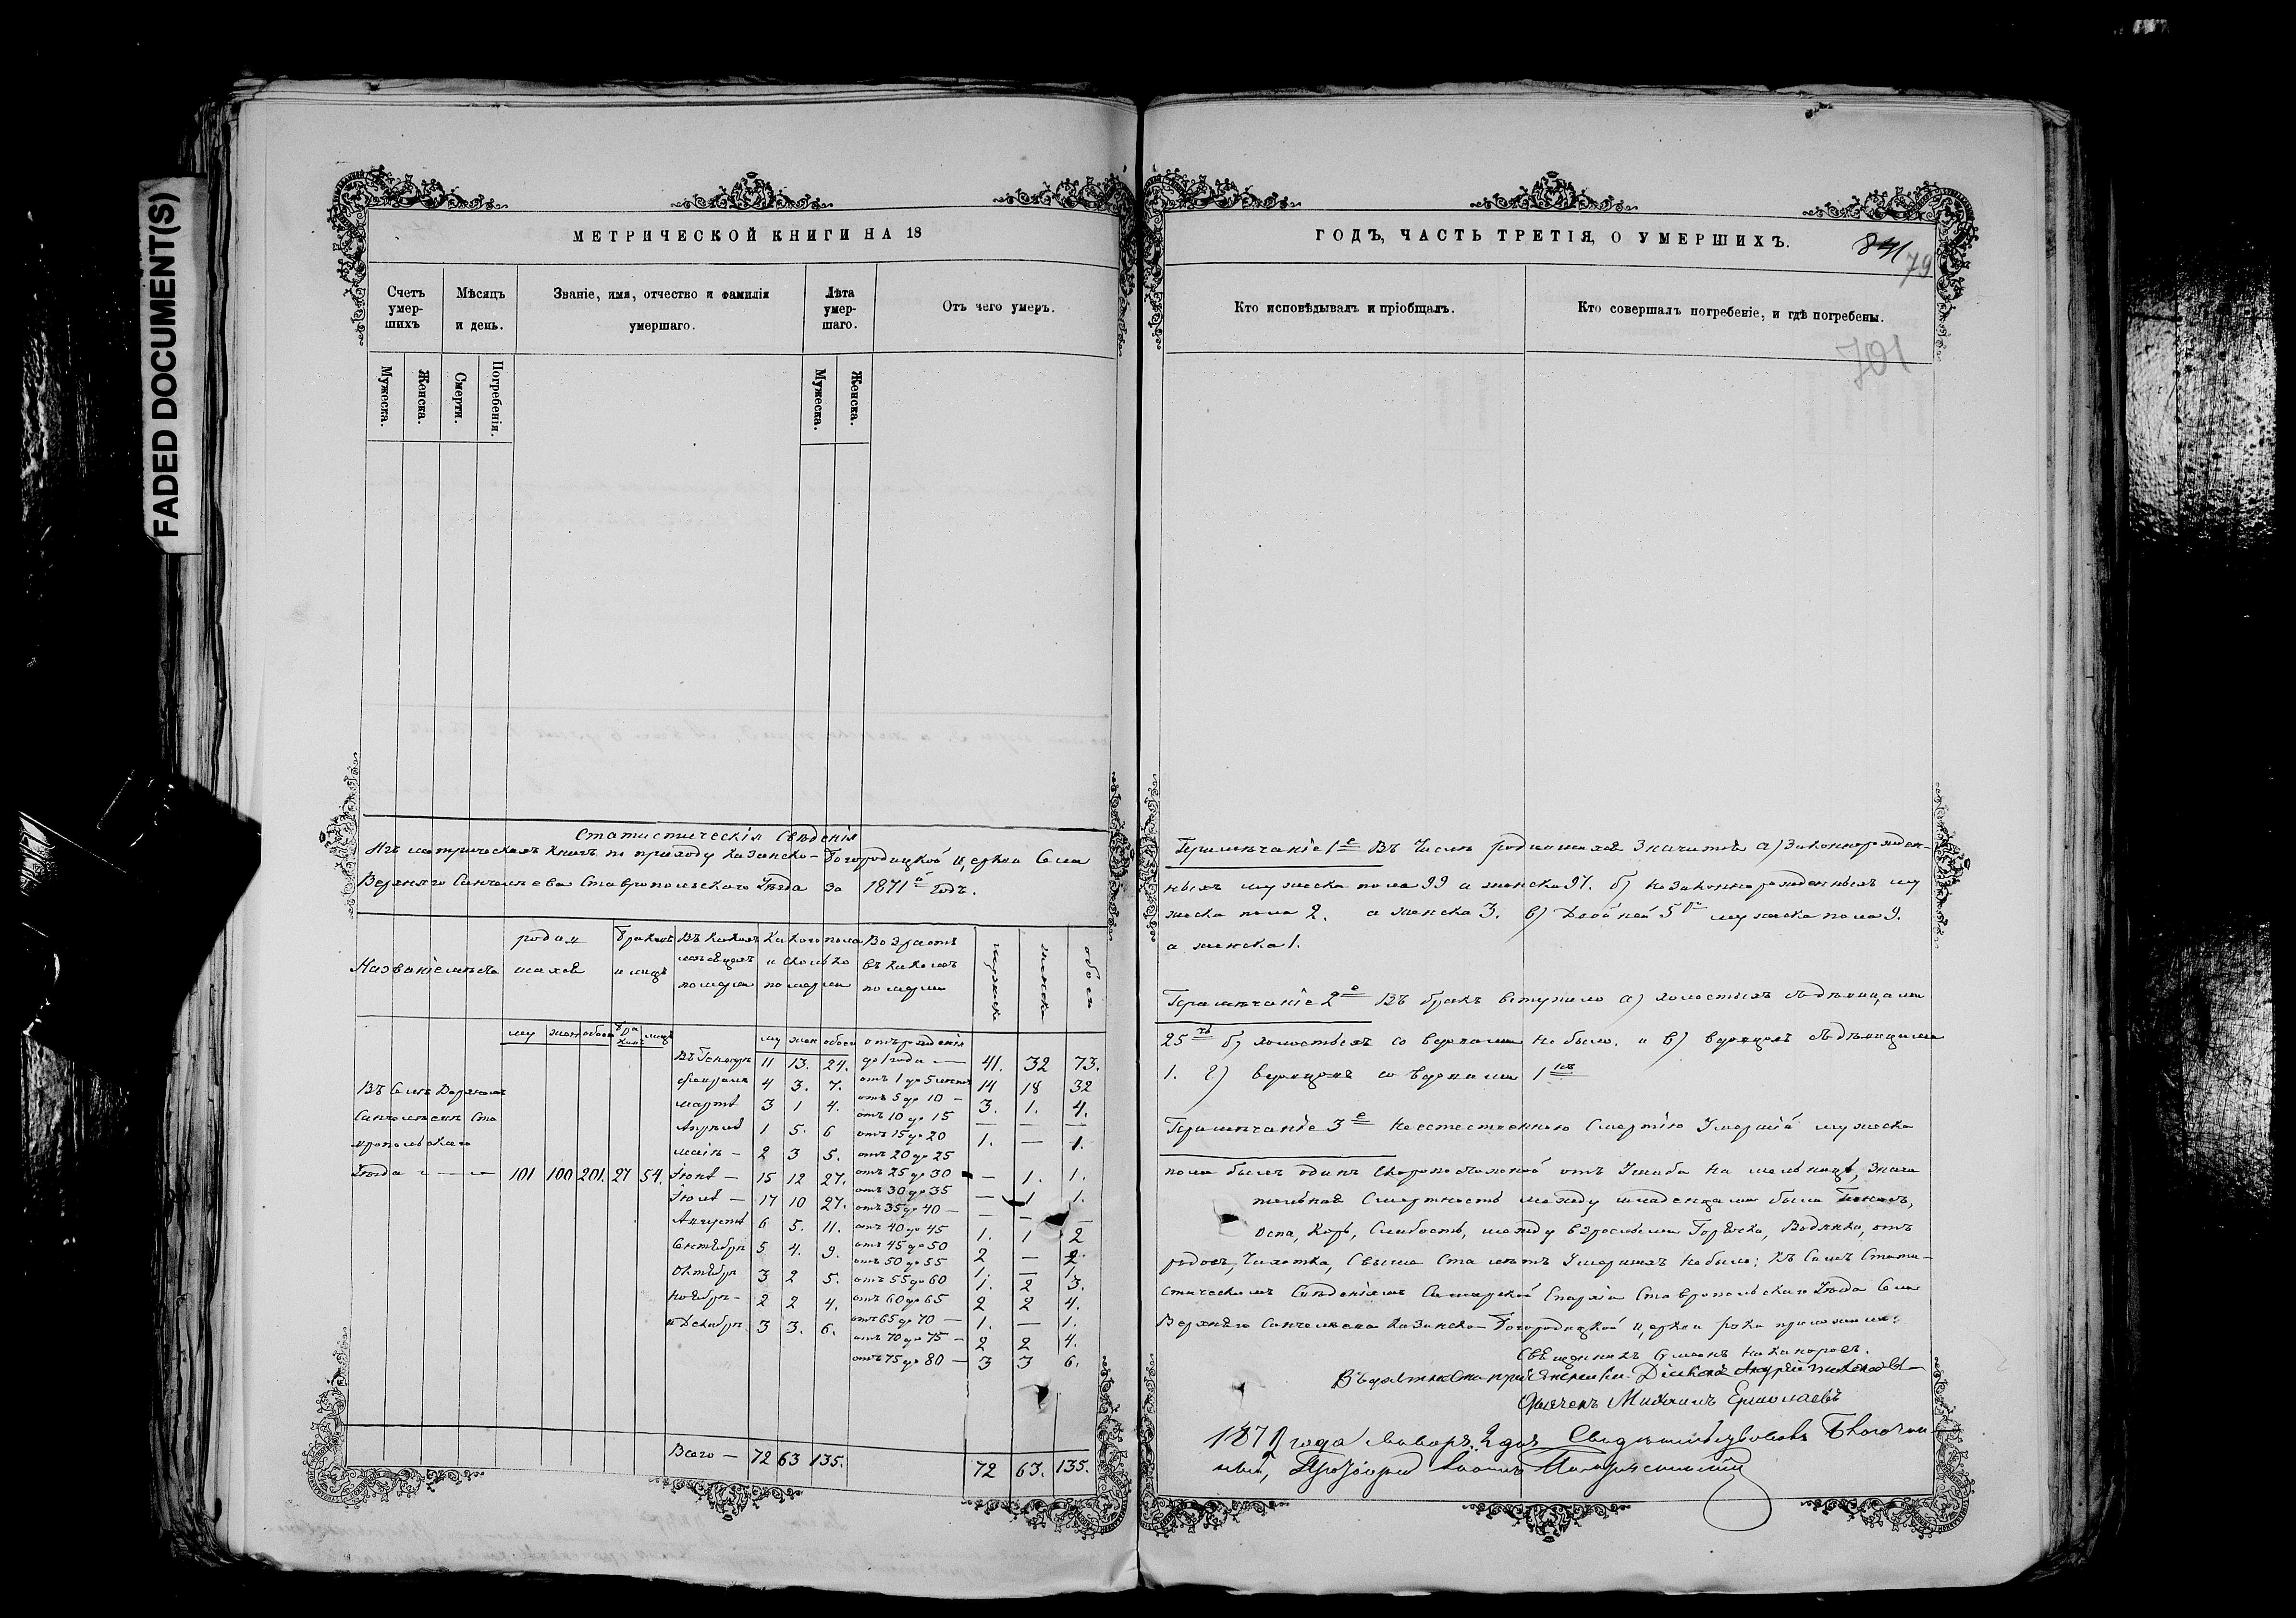 FADED DOCUMENT(S)
МЕТРИЧЕСКОЙ КНИГИ НА 18
Счетъ умер-шихъ
Мѣсяцъ и день.
Званіе, имя, отчество и фамилія умершаго.
Лѣта умер-шаго.
Отъ чего умеръ.
Мужеска. Женска. Смерти. Погребенія. Мужеска. Женска.
Статистическія Свѣденія
Изъ метрическихъ книгъ по приходу Казанско-Богородицкой церкви Села
Верхняго Санчелѣева Ставропольского Уѣзда за 1871й годъ.
Названіе мѣста
родив шихся
браковъ и лицъ
Въ какихъ мѣсяцахъ померли
Какого пола и сколько померли
Возрастъ въ какомъ померли
мужска женска обоего
му жен обоего бра ковъ лицъ му жен обоего отъ рожденія
Въ Селѣ Верхнемъ
Санчелѣевѣ Ста
вропольскаго
Уѣзда 101 100 201. 27 54.
Въ Генварѣ 11 13. 24. до 1 года — 41. 32 73.
Февралѣ 4 3. 7. отъ 1 до 5 лѣтъ 14 18 32
мартѣ 3 1 4. отъ 5 до 10 — 3. 1. 4.
отъ 10 до 15 — — —
Апрѣлѣ 1 5. 6 отъ 15 до 20 1. — 1.
маіѣ — 2 3 5. отъ 20 до 25
Іюнѣ — 15 12 27. отъ 25 до 30 — 1. 1.
отъ 30 до 35 — 1 1.
Іюлѣ — 17 10 27. отъ 35 до 40 — — — —
Августѣ 6 5. 11. отъ 40 до 45 1. 1 2
Сентябрѣ 5 4. 9. отъ 45 до 50 2 — 2.
отъ 50 до 55 1. — 1.
Октябрѣ 3 2 5. отъ 55 до 60 1. 2 3.
Ноябрѣ — 2 2 4. отъ 60 до 65 2 2 4.
отъ 65 до 70 — 1. — 1.
и Декабрѣ 3 3. 6. отъ 70 до 75 — 2 2 4.
отъ 75 до 80 — 3 3 6.
Всего — 72 63 135. 72 63. 135.
ГОДЪ, ЧАСТЬ ТРЕТІЯ, О УМЕРШИХЪ.
841
79
Кто исповѣдывалъ и пріобщалъ.
Кто совершалъ погребеніе, и гдѣ погребены.
701
Примѣчаніе 1е Въ числѣ родившихся значится а) законнорожден-
ныхъ мужеска пола 99 и женска 97. б) незаконнорожденныхъ му
жеска пола 2. а женска 3. в) Двойней 5 мужеска пола 9.
а женска 1.
Примѣчаніе 2е Въ бракъ вступило а) холостыхъ съ дѣвицами
25ть б) холостыхъ со вдовами не было. и в) вдовцовъ съ дѣвицами
1. г) вдовцовъ со вдовами 1
Примѣчаніе 3е Неестественною Смертію Умершій мужеска
пола былъ одинъ Скоропостижной отъ Ушиба на мельницѣ, Значи
тельная Смертность между младенцами была
Оспа, Корь, Слабость, между взрослыми Горячка, Водянка, отъ
родовъ, Чихотка, Свыше Ста лѣтъ Умершихъ не было; Къ Симъ Стати-
стическимъ Свѣденіямъ Самарской Епархіи Ставропольскаго Уѣзда Села
Верхняго Санчелѣева Казанско-Богородицкой церкви руки приложили:
Священникъ Симеонъ Никаноровъ.
Діаконъ Андрей
Дьячекъ Михаилъ Ермолаевъ
года Января 2 дня Свидѣтельствовалъ Благочин
ный, Іоаннъ